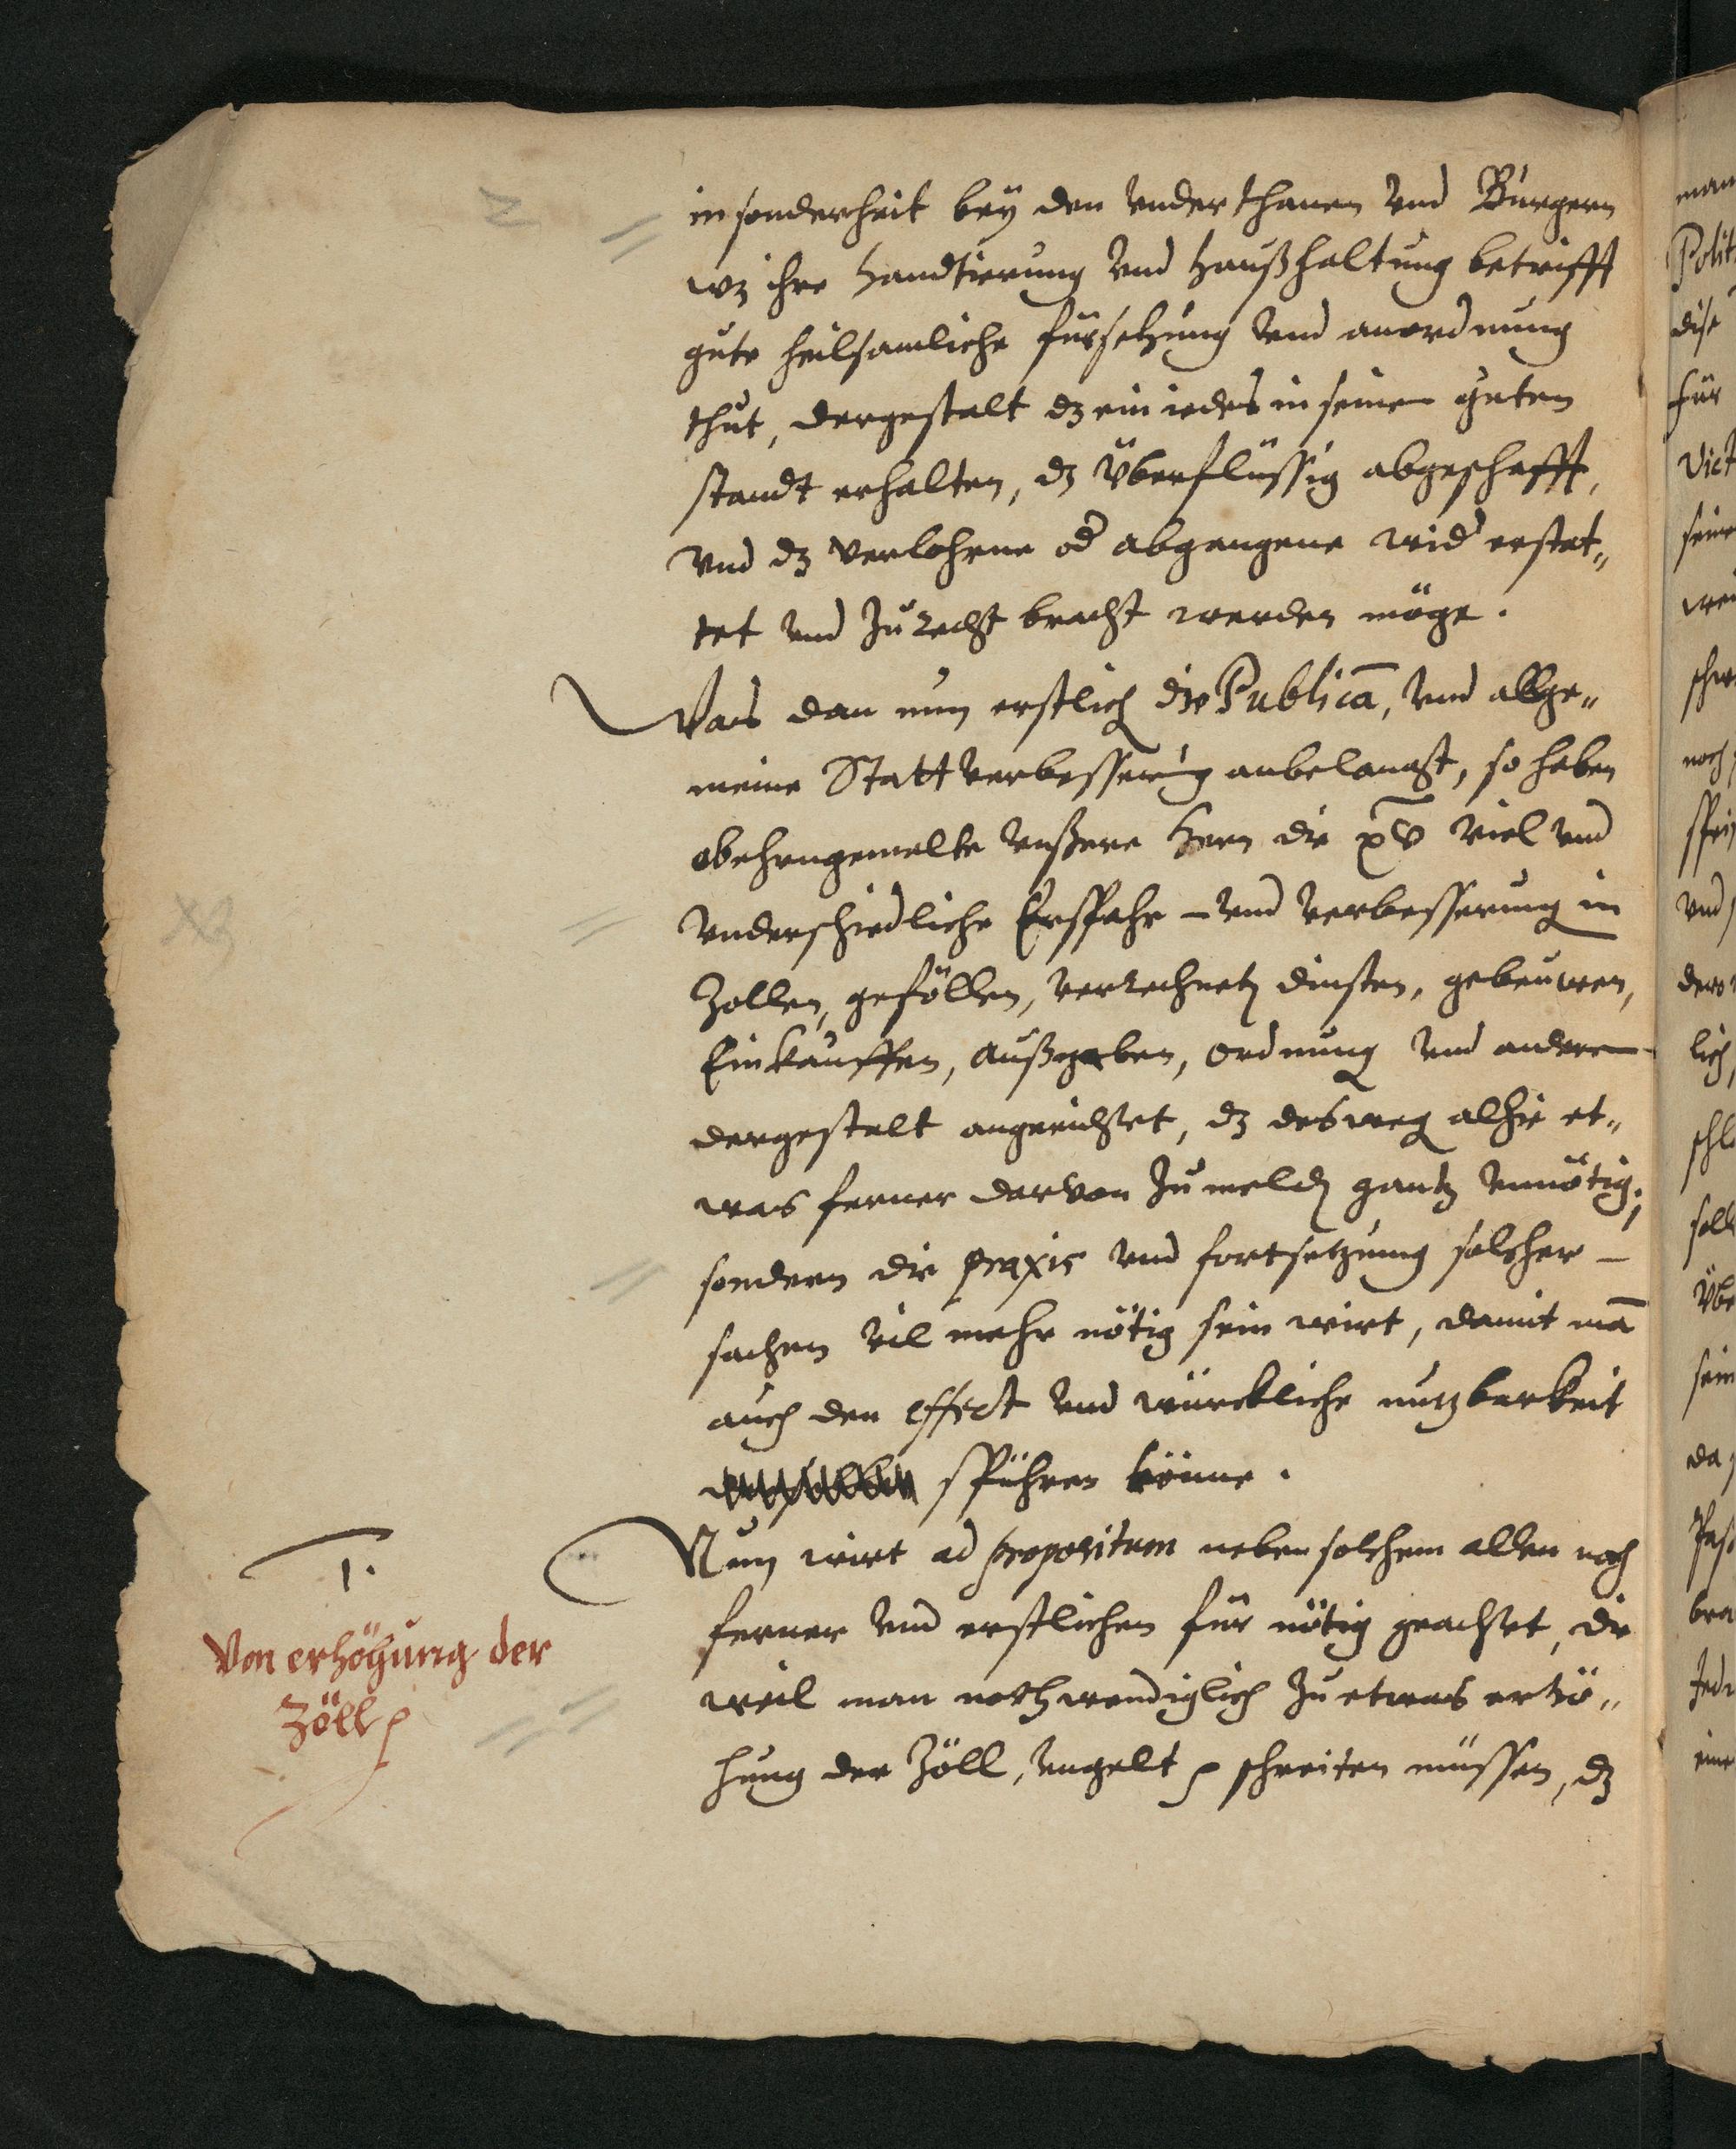 insonderheit bey den vnderthanen vnd Bürgern
wz ihre Handtierung vnd Haußhaltung betrifft
gute heilsamliche fürsehung vnd anordnung
thut, dergestalt dz ein iedes in seinem guten
standt erhalten, dz Überflüssig abgeschafft,
vnd dz verlohrne od abgangene wid erstat„
tet vnd zu recht bracht werden möge.
Was dan nun erstlich die Publica, vnd allge„
meine Statt verbesserung anbelangt, so haben
obehrngemelte vnßere Hern die XV viel vnd
vnderschiedliche Ersparh- vnd verbesserung in
Zollen, geföllen, dinsten, gebeuwen,
Einkauffen, außgeben, ordnung vnd anderm
dergestalt angerichtet, dz desweg alhie et„
was ferner darvon zu meld gantz vnnötig;
sondern die praxis vnd fortsetzung solcher
sachen vil mehr nötig sein wirt, damit mā
auch den effect vnd würckliche nutzbarkeit
spühren könne.
1.
Von erhöhung der
Zöll
Nun wirt ad propositum neben solchem allen noch
ferner vnd erstlichen für nötig geachtet, die
weil man nothwendiglich zu etwas erhö„
hung der Zöll, vngelt schreiten müssen, dz